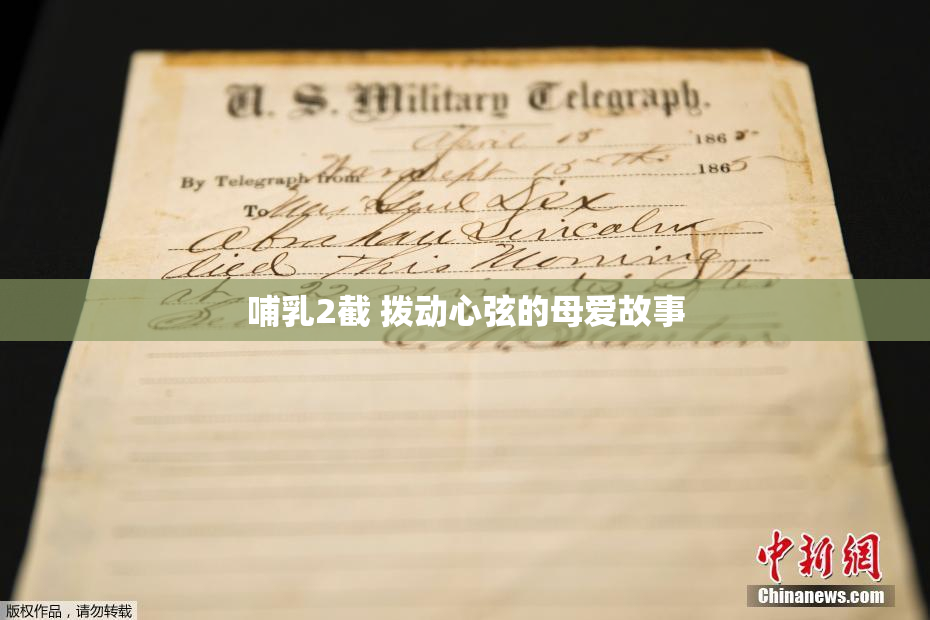 U. S. Military Telegraph.
April 15 1865
By Telegraph from War Dept 15th 1865
To Maj Genl Dix
Abraham Lincoln
died This Morning
at 22 minutes after
哺乳2截 拨动心弦的母爱故事
E. M. Stanton
中新網
Chinanews.com
版权作品，请勿转载